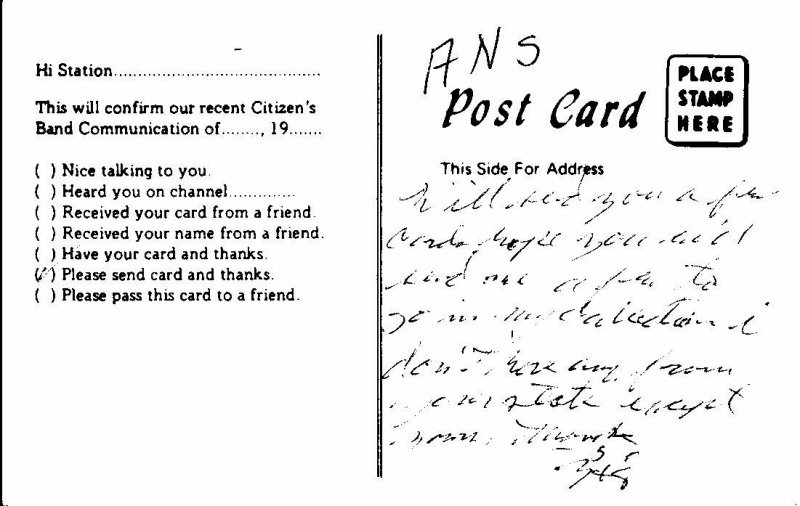 Hi Station..........................................
This will confirm our recent Citizen's
Band Communication of........, 19.......
( ) Nice talking to you.
( ) Heard you on channel..............
( ) Received your card from a friend.
( ) Received your name from a friend.
( ) Have your card and thanks.
(✓) Please send card and thanks.
( ) Please pass this card to a friend.
ANS
Post Card
PLACE
STAMP
HERE
This Side For Address
will send you a few
cards hope you will
send me a few to
go in my collection I
don't have any from
your state except
yours. Thanks